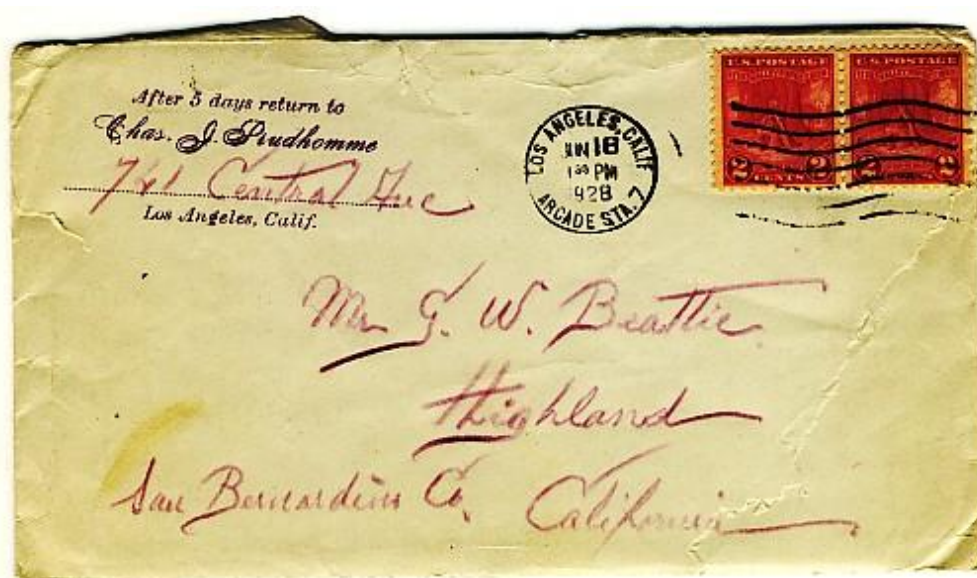 After 5 days return to
Chas. J. Prudhomme
Central Ave
Los Angeles, Calif.
LOS ANGELES, CALIF
JUN 18
PM
1928
ARCADE STA. 7
U.S. POSTAGE
U.S. POSTAGE
2 2
2 2
Mr G. W. Beattie
Highland
San Bernardino Co. California